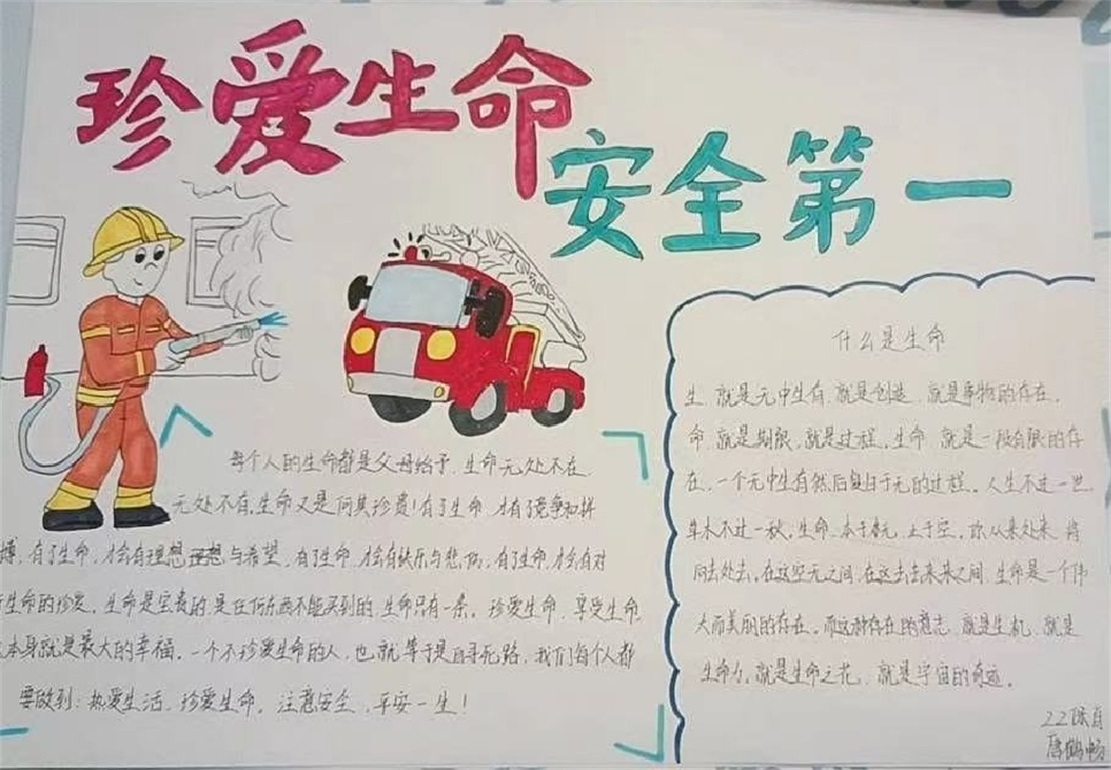 珍爱生命
安全第一
每个人的生命都是父母给予,生命无处不在,
无处不有,生命又是何其珍贵!有了生命,才有了竞争和拼
搏,有了生命,才会有理想与希望,有了生命,才会有快乐与悲伤,有了生命,才会有对
生命的珍爱。生命是宝贵的,是任何东西不能买到的,生命只有一条。珍爱生命,享受生命,
本身就是最大的幸福。一个不珍爱生命的人,也就等于是自寻死路,我们每个人都
要做到:热爱生活,珍爱生命,注意安全,平安一生!
什么是生命
生,就是无中生有,就是创造,就是事物的存在。
命,就是期限,就是过程,生命,就是一段有限的存
在,一个无中生有然后复归于无的过程。人生不过一世,
草木不过一秋,生命,本于无,止于空。你从来处来,将
向去处去。在这空无之间,在这去去来来之间,生命是一个伟
大而美丽的存在。而这种存在的意志,就是生机,就是
生命力,就是生命之花,就是宇宙的奇迹。
唐鹤畅